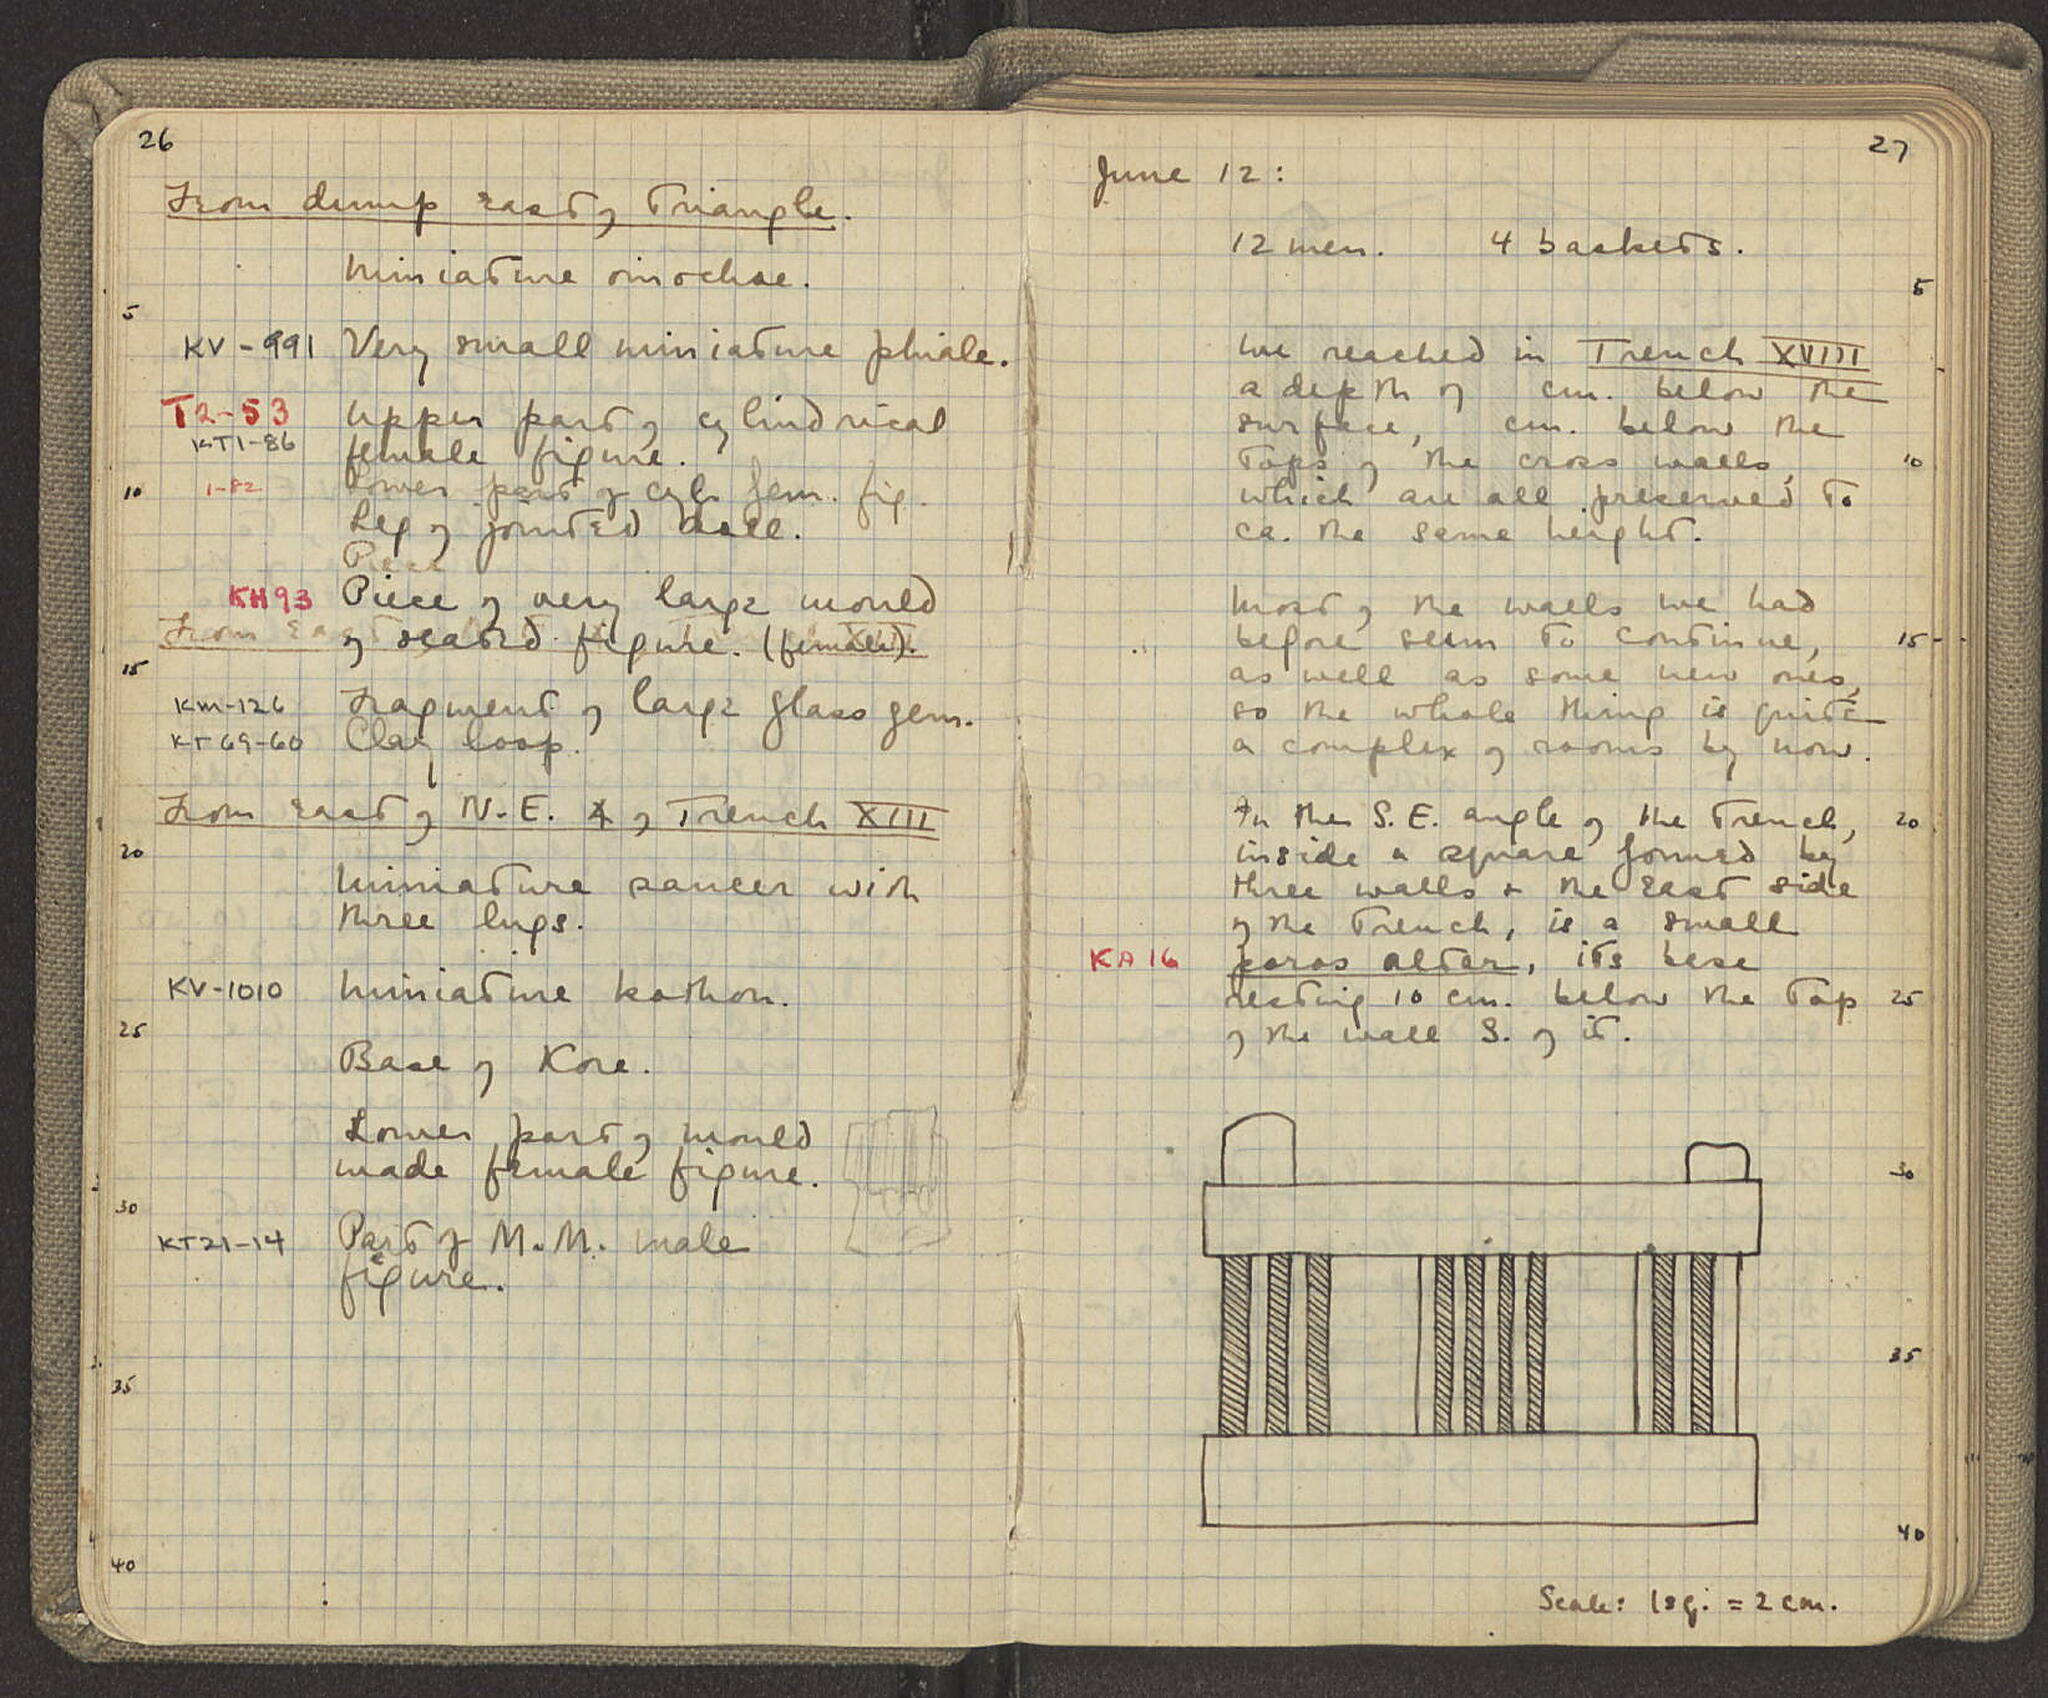 26
From dump east of Triangle.
Miniature oinochoe.
5
KV-991 Very small miniature phiale.
T2-53 Upper part of cylindrical
KT1-86 female figure.
10 1-82 Lower part of cyl. fem. fig.
Leg of jointed doll.
Piece
KH93 Piece of very large mould
From East
of seated figure. (female).
15
KM-126 Fragment of large glass gem.
KT69-60 Clay loop.
From east of N.E. ∡ of Trench XIII
20
Miniature saucer with
three lugs.
KV-1010 Miniature kothon.
25
Base of Kore.
Lower part of mould
made female figure.
30
KT21-14 Part of M.M. male
figure.
35
40
27
June 12:
12 men. 4 baskets.
5
We reached in Trench XVIII
a depth of cm. below the
surface, cm. below the
tops of the cross walls, 10
which are all preserved to
ca. the same height.
Most of the walls we had
before seem to continue, 15
as well as some new ones,
so the whole thing is quite
a complex of rooms by now.
In the S.E. angle of the Trench, 20
inside a square formed by
three walls + the east side
of the Trench, is a small
KA 16 poros altar, its base
resting 10 cm. below the top 25
of the wall S. of it.
30
35
40
Scale: 1 sq. = 2 cm.